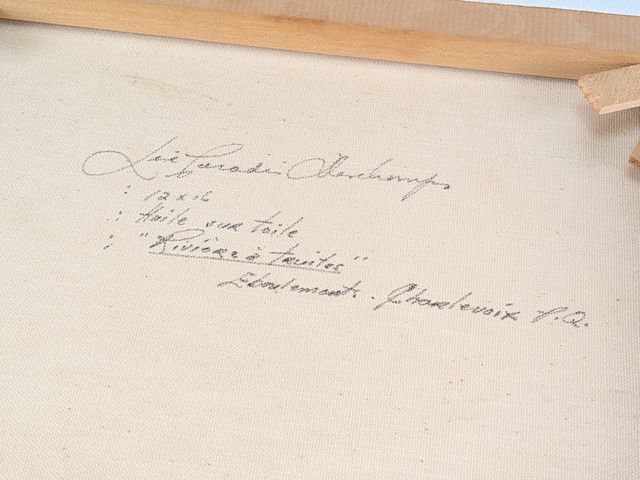 Paradis Deschamps
: 12 x 16
: Huile sur toile
: "Rivière à truites"
Eboulements. Charlevoix P.Q.